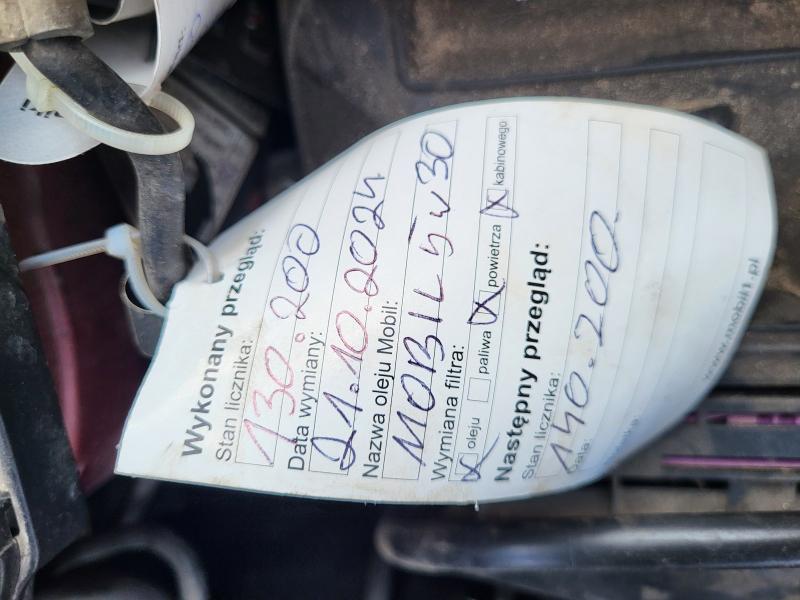 Wykonany przegląd:
Stan licznika:
130.200
Data wymiany:
21.10.2024
Nazwa oleju Mobil:
MOBIL 5w30
Wymiana filtra:
X oleju paliwa X powietrza X kabinowego
Następny przegląd:
Stan licznika:
140.200.
Data
www.mobil1.pl